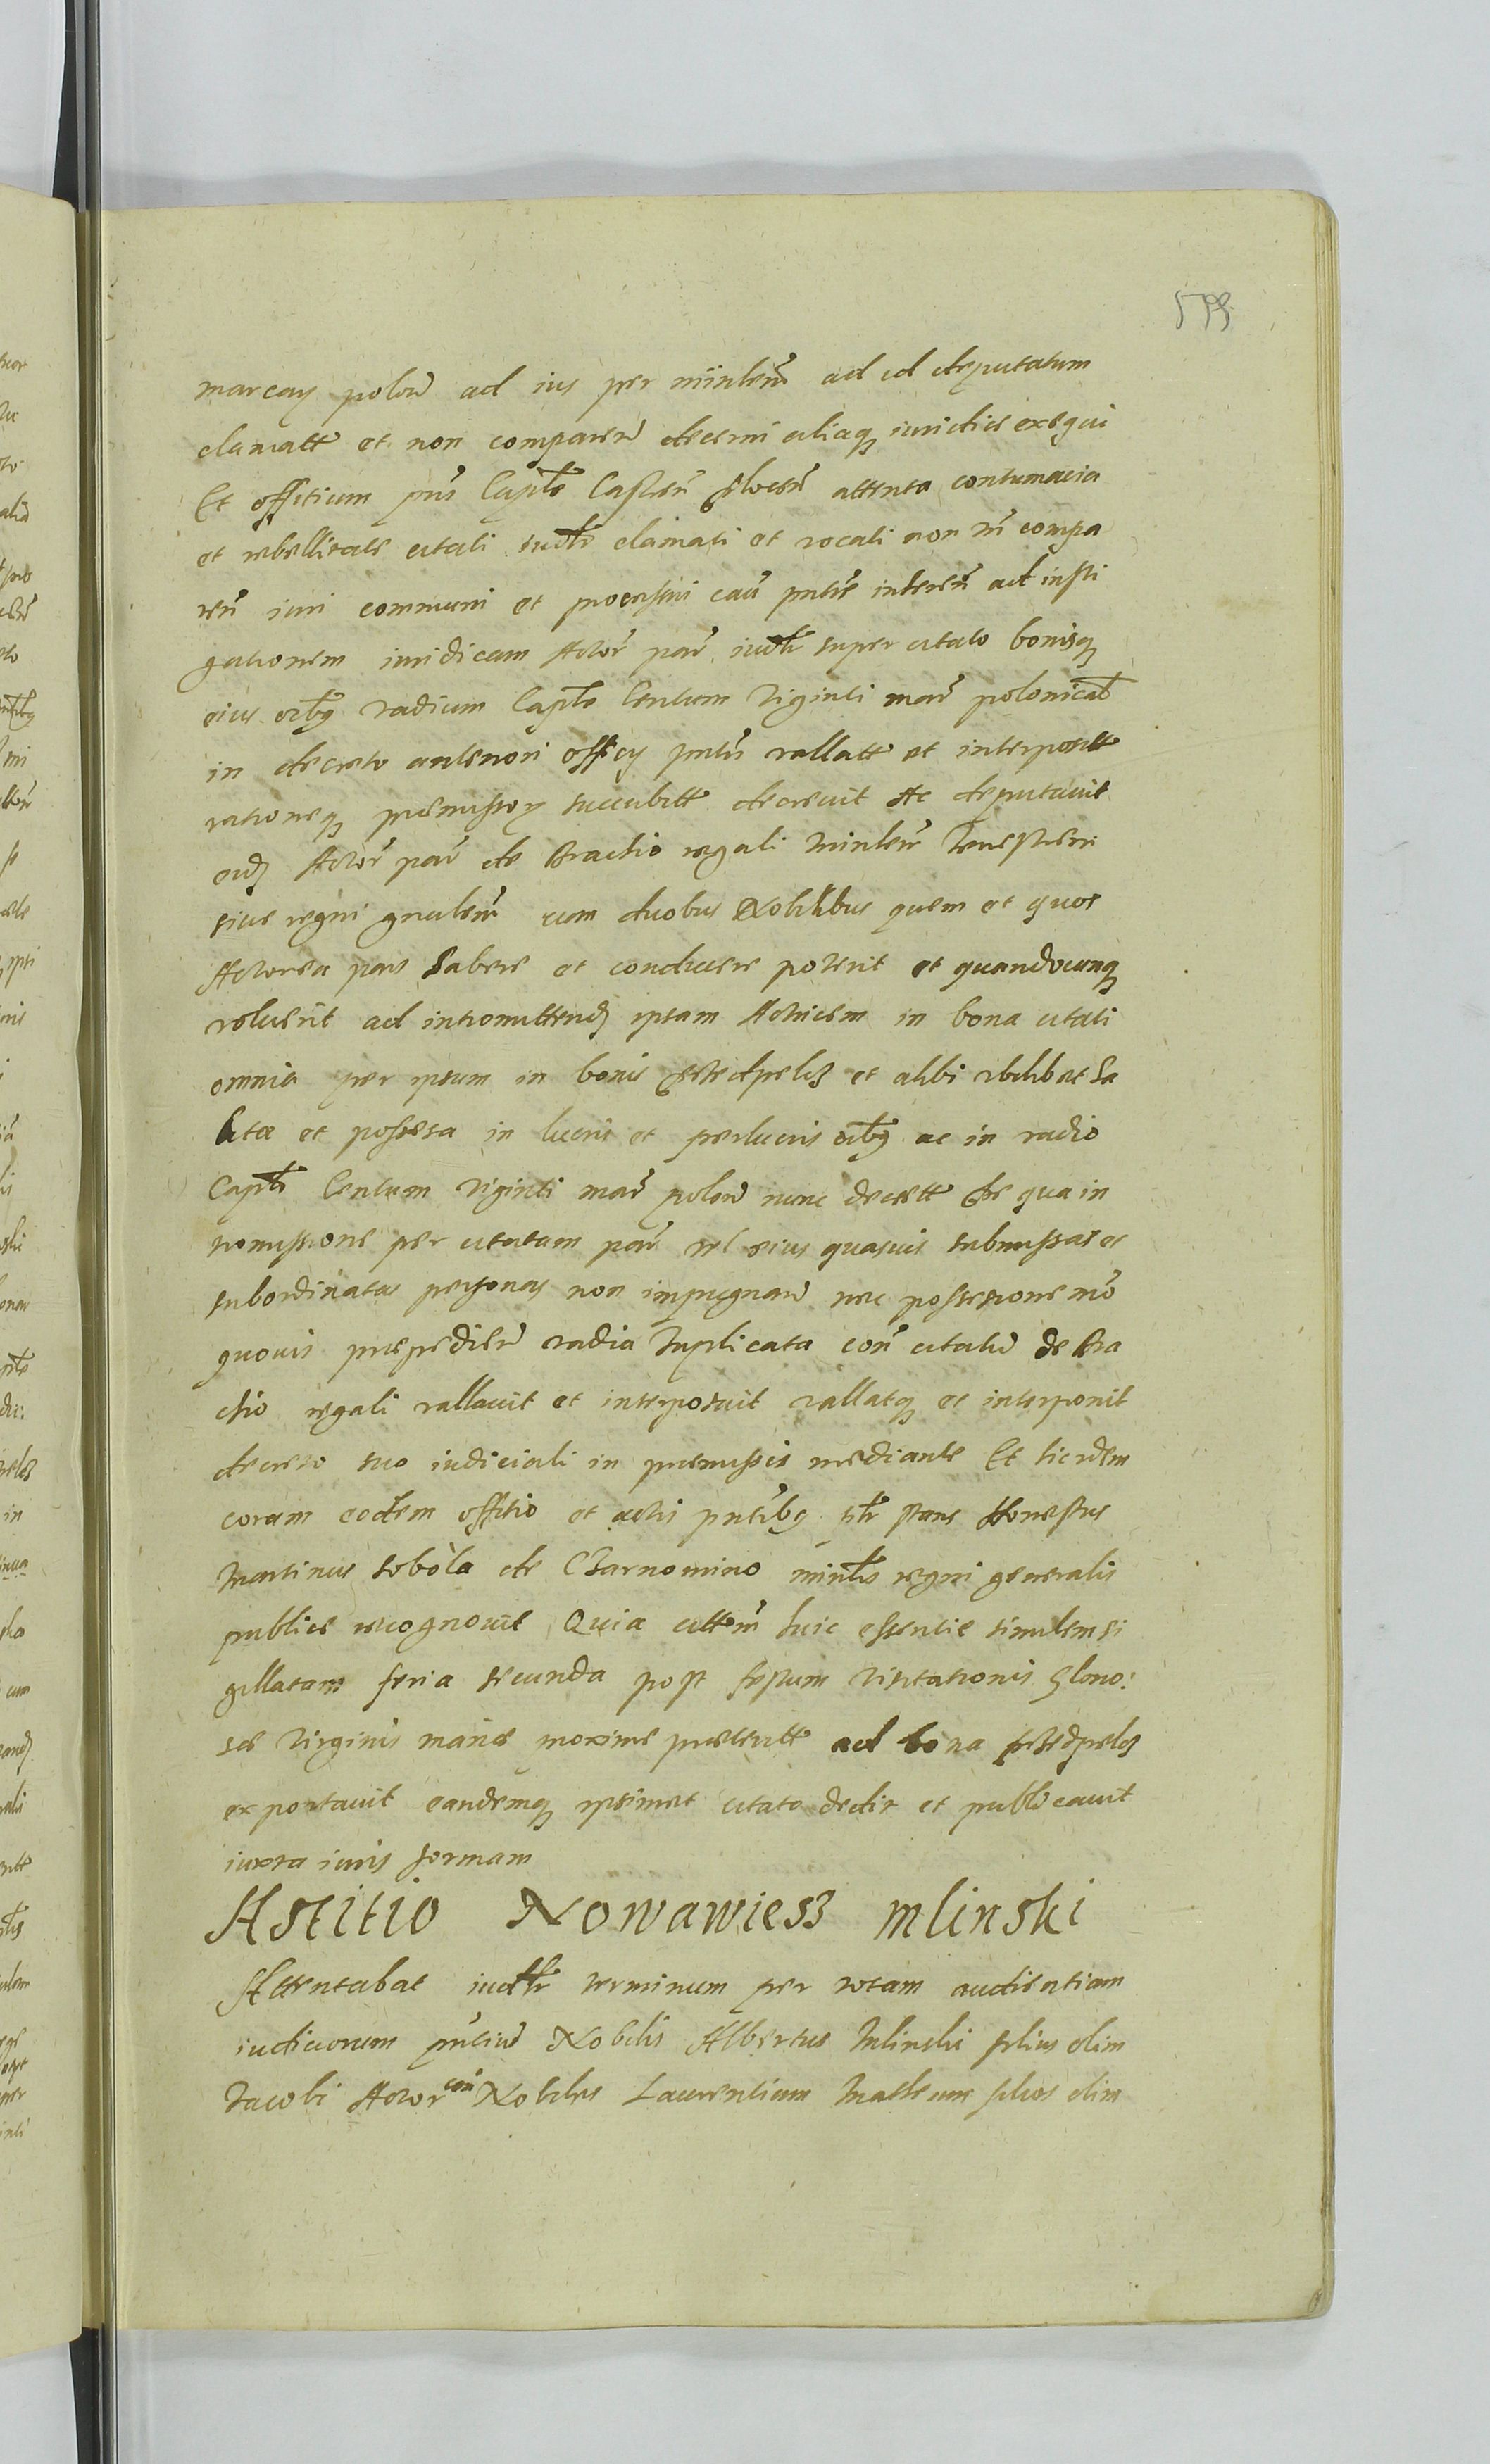 599
marcaꝝ polon̄ ad ius per minlem̄ ad id deputatum
clamatt et non comparen̄ decerni aliaqꝫ iuridice exequi
Et officium pn̄s Capłe Castren̄ Plocen̄ attenta contumacia
et rebellitate citati iudłr clamati et vocati non tn̄ compa
ren̄ iuri communi et processui caū pntis inheren̄ ad insti
gationem iuridicam Actoȓ par̄ iudłr super citato bonisqꝫ
eius oībꝫ vadium Capłe Centum viginti mar̄ polonicał
in decreto anteriori officij pntis vallatt et interpositt
rationeqꝫ premissoꝝ succubitt decrevit Ac deputavit
eidꝫ Actoȓ par̄ de Brachio regali minlem̄ Terrestrem
sive regni gnalem̄ cum duobus Nobilibus quem et quos
Actorea pars habere et conducere poterit et quandocunqꝫ
voluerit ad intromittendꝫ ipsam Actricem in bona citati
omnia per ipsum in bonis et alibi ubilibet ha
bita et possessa in lucris et perlucris oībꝫ ac in vadio
Capłi Centum viginti mar̄ polon̄ nunc decrett De qua in
tromissione per citatam par̄ vel eius quasvis submissas et
subordinatas personas non impugnan̄ nec possessione mō
quovis prepedien̄ vadia Triplicata con̄ citatū de Bra
chio regali vallavit et interposuit vallatqꝫ et interponit
decreto suo iudiciali in premissis mediante Et ibidem
coram eodem officio et actis pntibꝫ iłr stans Honestus
Martinus Sobola de Charnomino minłis regni generalis
publice recognovit Quia cittem̄ huic essentie similem si
gillatam feria secunda post festum visitationis Glorio:
sae virginis mariae proxime preteritt ad bona
exportavit eandemqꝫ ipsimet citato dedit et publicavit
iuxta iuris formam
Astitio Nowawiess mlinski
Attentabat iudłr terminum per totam audientiam
iudiciorum pn̄tiū Nobilis Albertus Mlinski filius olim
Iacobi Actor con̄ Nobiles Laurentium Matheum filios olim